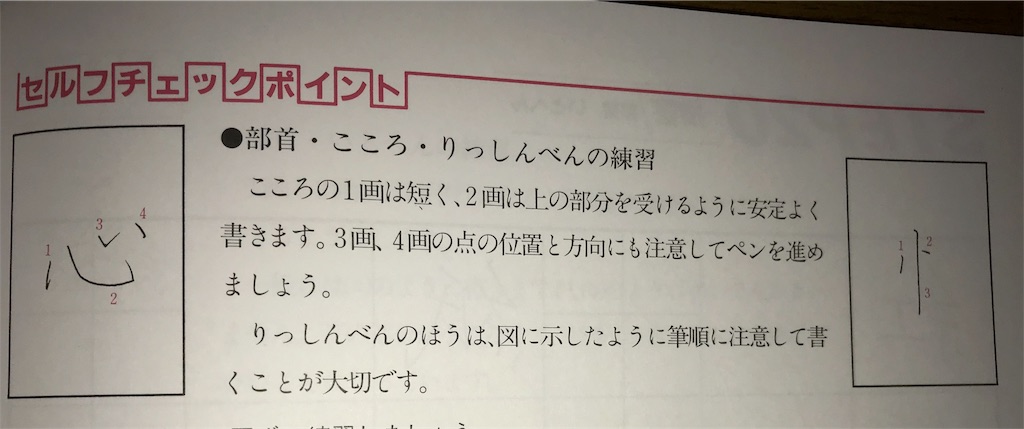 セルフチェックポイント
●部首・こころ・りっしんべんの練習
こころの1画は短く、2画は上の部分を受けるように安定よく
書きます。3画、4画の点の位置と方向にも注意してペンを進め
ましょう。
りっしんべんのほうは、図に示したように筆順に注意して書
くことが大切です。
1
2
3
4
1
2
3